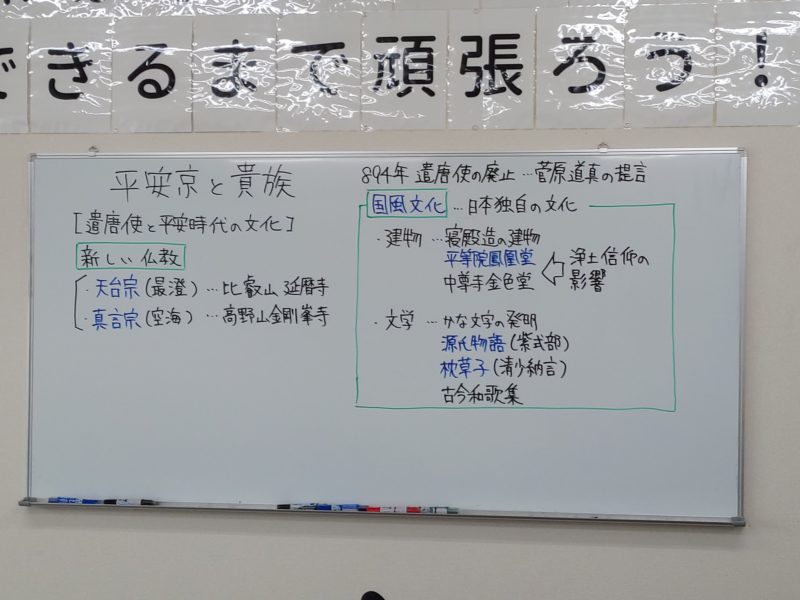 できるまで頑張ろう!
平安京と貴族
[遣唐使と平安時代の文化]
新しい仏教
・天台宗(最澄)…比叡山 延暦寺
・真言宗(空海)…高野山金剛峯寺
894年 遣唐使の廃止…菅原道真の提言
国風文化…日本独自の文化
・建物…寝殿造の建物
平等院鳳凰堂
中尊寺金色堂
浄土信仰の
影響
・文学…かな文字の発明
源氏物語(紫式部)
枕草子(清少納言)
古今和歌集